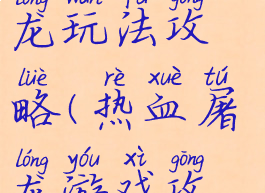 lóng wán fǎ gōng
龙玩法攻
lüè rè xuè tú
略(热血屠
lóng yóu xì gōng
龙游戏攻